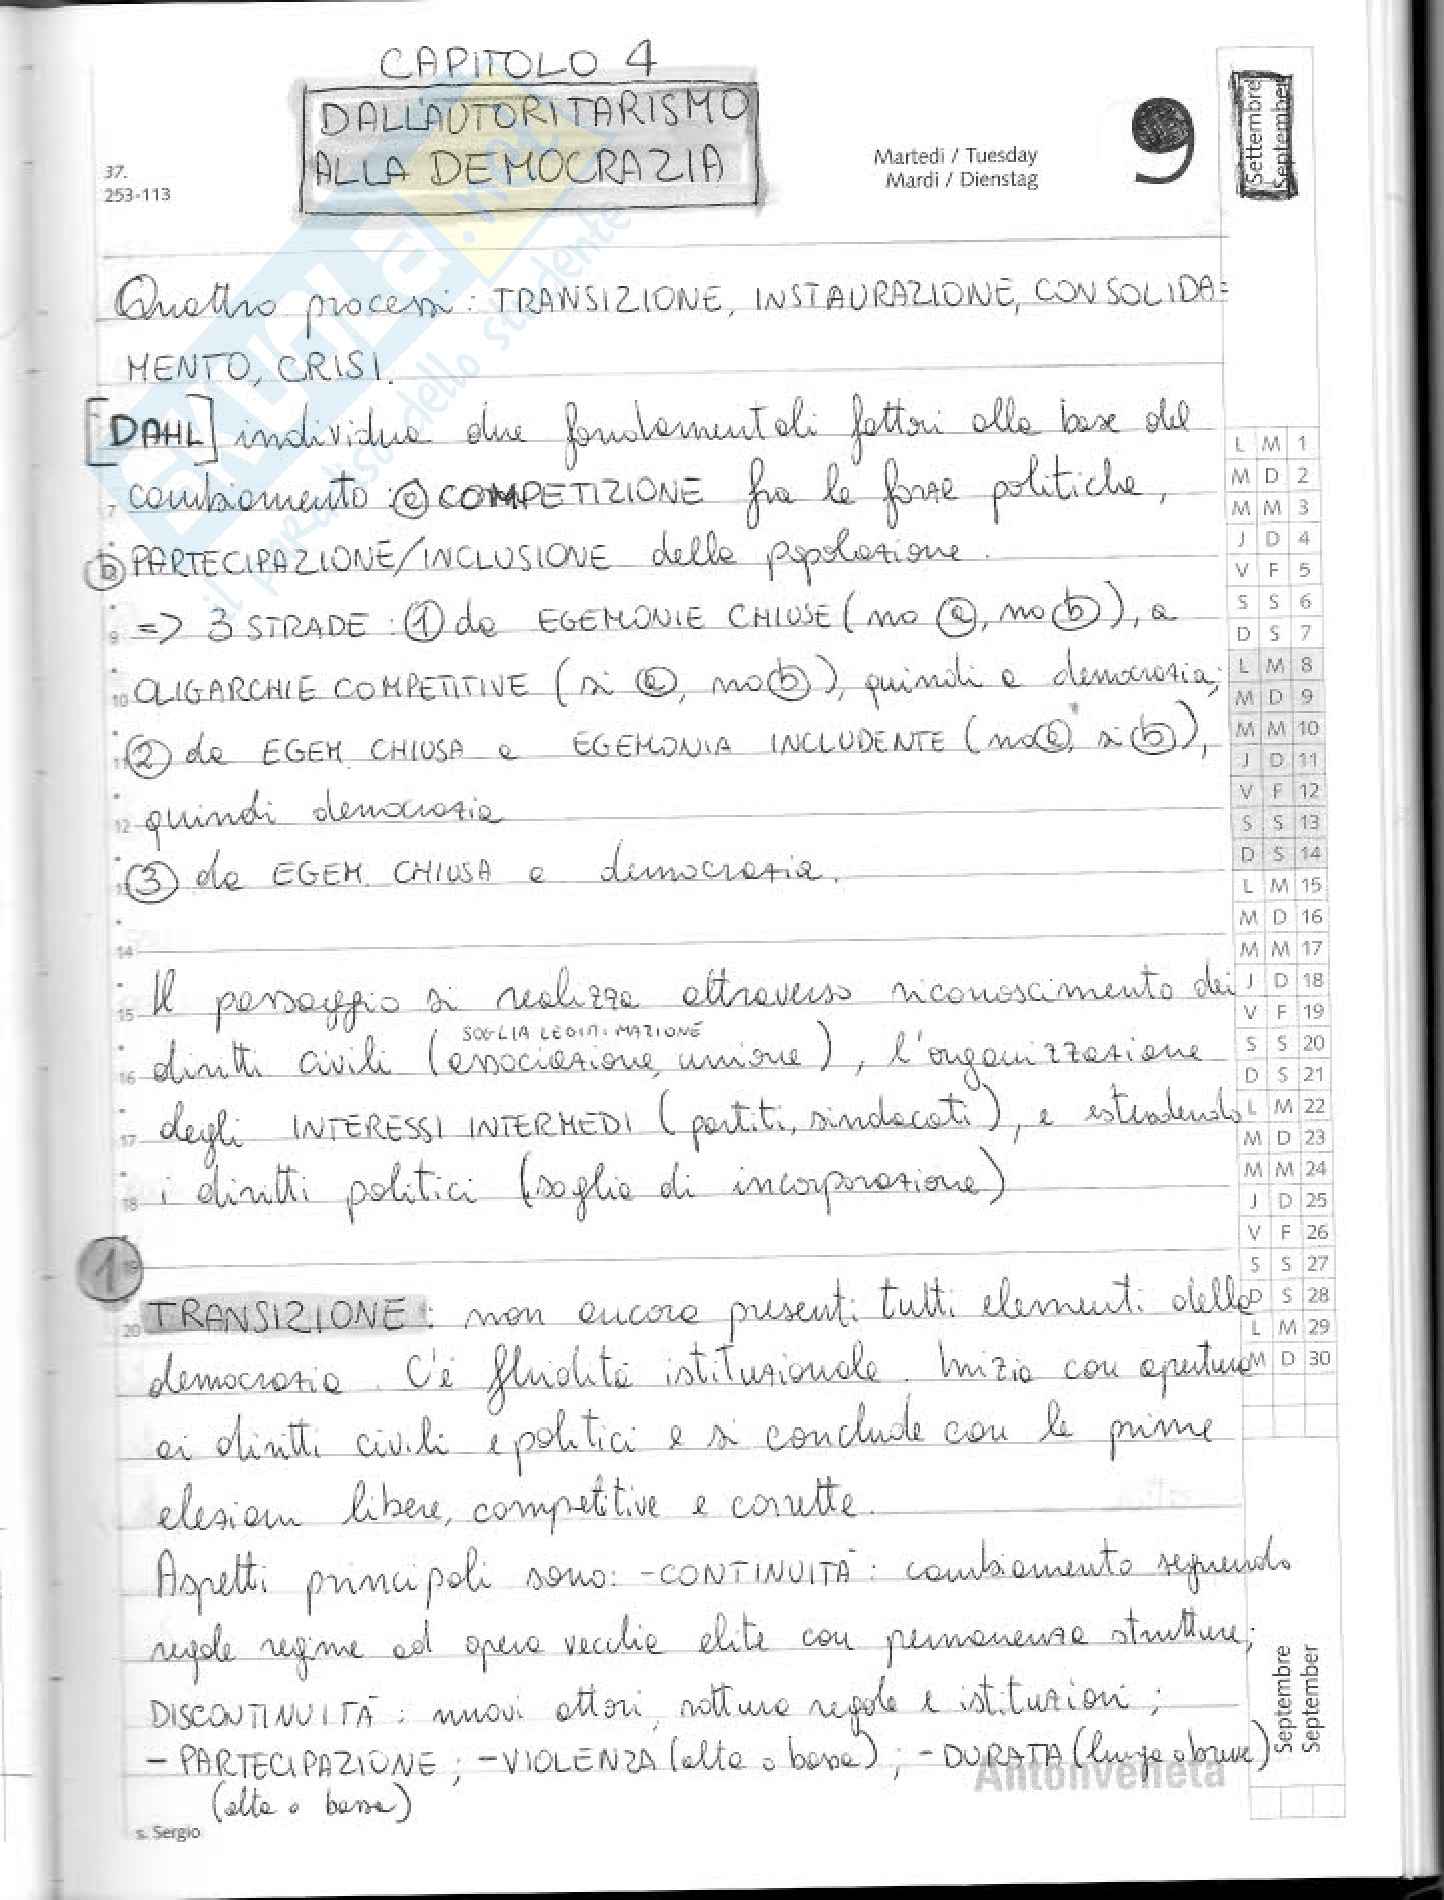 CAPITOLO 4
DALL'AUTORITARISMO
ALLA DEMOCRAZIA
37.
253-113
Martedì / Tuesday
Mardi / Dienstag
9
Settembre
September
Quattro processi: TRANSIZIONE, INSTAURAZIONE, CONSOLIDA=
MENTO, CRISI.
[DAHL] individua due fondamentali fattori alla base del
cambiamento: ⓐ COMPETIZIONE fra le forze politiche,
ⓑ PARTECIPAZIONE/INCLUSIONE della popolazione.
=> 3 STRADE: ① da EGEMONIE CHIUSE (no ⓐ, no ⓑ), a
OLIGARCHIE COMPETITIVE (si ⓐ, no ⓑ), quindi a democrazia;
② da EGEM. CHIUSA a EGEMONIA INCLUDENTE (no ⓐ, si ⓑ),
quindi democrazia
③ da EGEM. CHIUSA a democrazia.
Il passaggio si realizza attraverso riconoscimento dei
SOGLIA LEGITTIMAZIONE
diritti civili (associazione, unione), l'organizzazione
degli INTERESSI INTERMEDI (partiti, sindacati), e estendendo
i diritti politici (soglia di incorporazione)
1
TRANSIZIONE: non ancora presenti tutti elementi della
democrazia. C'è fluidità istituzionale. Inizia con apertura
ai diritti civili e politici e si conclude con le prime
elezioni libere, competitive e corrette.
Aspetti principali sono: - CONTINUITÀ: cambiamento seguendo
regole regime ad opera vecchia elite con permanenza strutture;
DISCONTINUITÀ: nuovi attori, rottura regole e istituzioni;
- PARTECIPAZIONE; - VIOLENZA (alta o bassa); - DURATA (lunga o breve)
(alta o bassa)
Antonveneta
s. Sergio
7
9
10
11
12
13
14
15
16
17
18
19
20
L M 1
M D 2
M M 3
J D 4
V F 5
S S 6
D S 7
L M 8
M D 9
M M 10
J D 11
V F 12
S S 13
D S 14
L M 15
M D 16
M M 17
J D 18
V F 19
S S 20
D S 21
L M 22
M D 23
M M 24
J D 25
V F 26
S S 27
D S 28
L M 29
M D 30
Septembre
September
SKUOLA.net
il paradiso dello studente